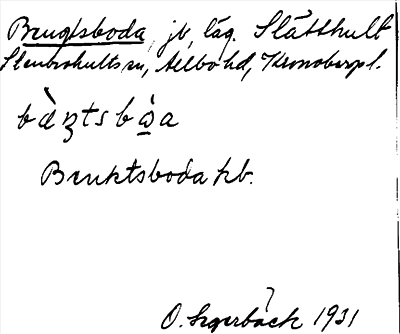 Brugtsboda, jb, läg. Slätthult
Stenbrohults sn, Allbo hd, Kronobergs l.
bàꞃtsbòa
Bruktsboda kb.
O. Segerbäck 1931